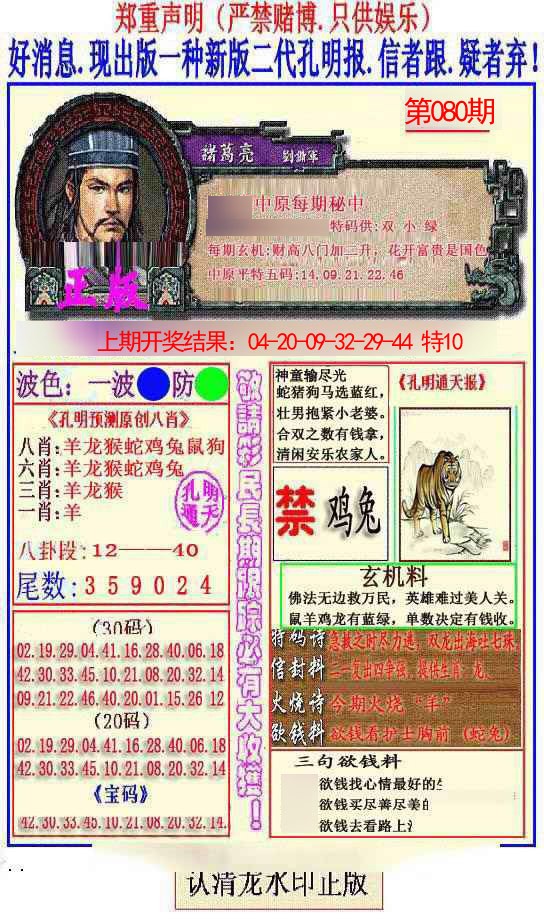 郑重声明（严禁赌博.只供娱乐）
好消息.现出版一种新版二代孔明报.信者跟.疑者弃！
第080期
諸葛亮
中原每期秘中
特码供:双 小 绿
每期玄机:财高八门加二升，花开富贵是国色
中原平特五码:14.09.21.22.46
正版
上期开奖结果：04-20-09-32-29-44 特10
波色：一波 防
《孔明预测原创八肖》
八肖:羊龙猴蛇鸡兔鼠狗
六肖:羊龙猴蛇鸡兔
三肖:羊龙猴
一肖:羊
孔明
通天
八卦段:12——40
尾数:359024
(30码)
02.19.29.04.41.16.28.40.06.18
42.30.33.45.10.21.08.20.32.14
09.21.22.46.40.20.01.15.26.12
(20码)
02.19.29.04.41.16.28.40.06.18
42.30.33.45.10.21.08.20.32.14
《宝码》
42.30.33.45.10.21.08.20.32.14.
敬請彩民長期跟踪必有大收獲！
神童输尽光
蛇猪狗马选蓝红，
壮男抱紧小老婆。
合双之数有钱拿，
清闲安乐农家人。
《孔明通天报》
禁 鸡兔
玄机料
佛法无边救万民，英雄难过美人关。
鼠羊鸡龙有蓝绿，单数决定有钱收。
特码诗 急救之时尽力逃，双龙出海吐七珠
信封料 二一发出四争强，提供生肖：龙、
火烧诗 今期火烧“羊”
欲钱料 欲钱看护士胸前（蛇兔）
三句欲钱料
欲钱找心情最好的
欲钱买尽善尽美
欲钱去看路上
认清龙水印正版